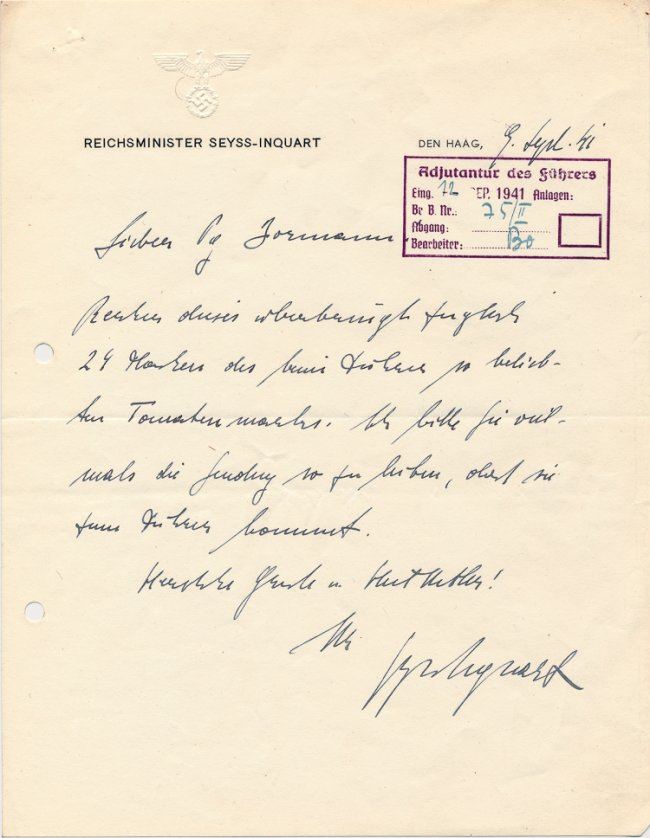 REICHSMINISTER SEYSS-INQUART
DEN HAAG, 9. Sept. 41
Adjutantur des Führers
Eing. 12 SEP. 1941 Anlagen:
Br B. Nr.: 75/II
Abgang:
Bearbeiter: Bo
Lieber Pg Bormann
dieses
24 des beim Führer so belieb-
ten Tomatenmarks. Ich bitte Sie viel-
mals die Sendung so zu leiten, dass sie
zum Führer kommt.
Herzliche Grüsse u Heil Hitler!
Ihr
Seyss-Inquart